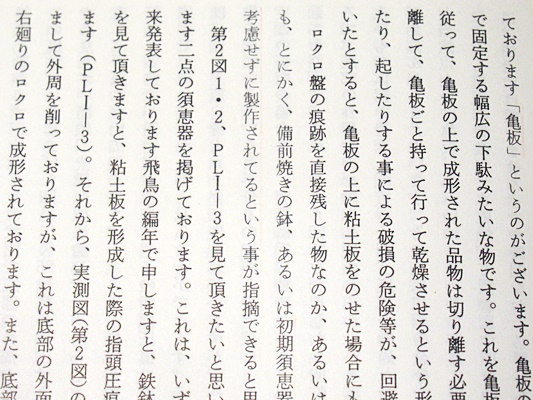 ております「亀板」というのがございます。亀板の
で固定する幅広の下駄みたいな物です。これを亀板
従って、亀板の上で成形された品物は切り離す必要
離して、亀板ごと持って行って乾燥させるという形
たり、起したりする事による破損の危険等が、回避
いたとすると、亀板の上に粘土板をのせた場合にも
ロクロ盤の痕跡を直接残した物なのか、あるいは
も、とにかく、備前焼きの鉢、あるいは初期須恵器
考慮せずに製作されてるという事が指摘できると思
第２図１・２、ＰＬⅠ―３を見て頂きたいと思い
ます二点の須恵器を掲げております。これは、いず
来発表しております飛鳥の編年で申しますと、鉄鉢
を見て頂きますと、粘土板を形成した際の指頭圧痕
ます（ＰＬⅠ―３）。それから、実測図（第２図）の
まして外周を削っておりますが、これは底部の外面
右廻りのロクロで成形されております。また、底部